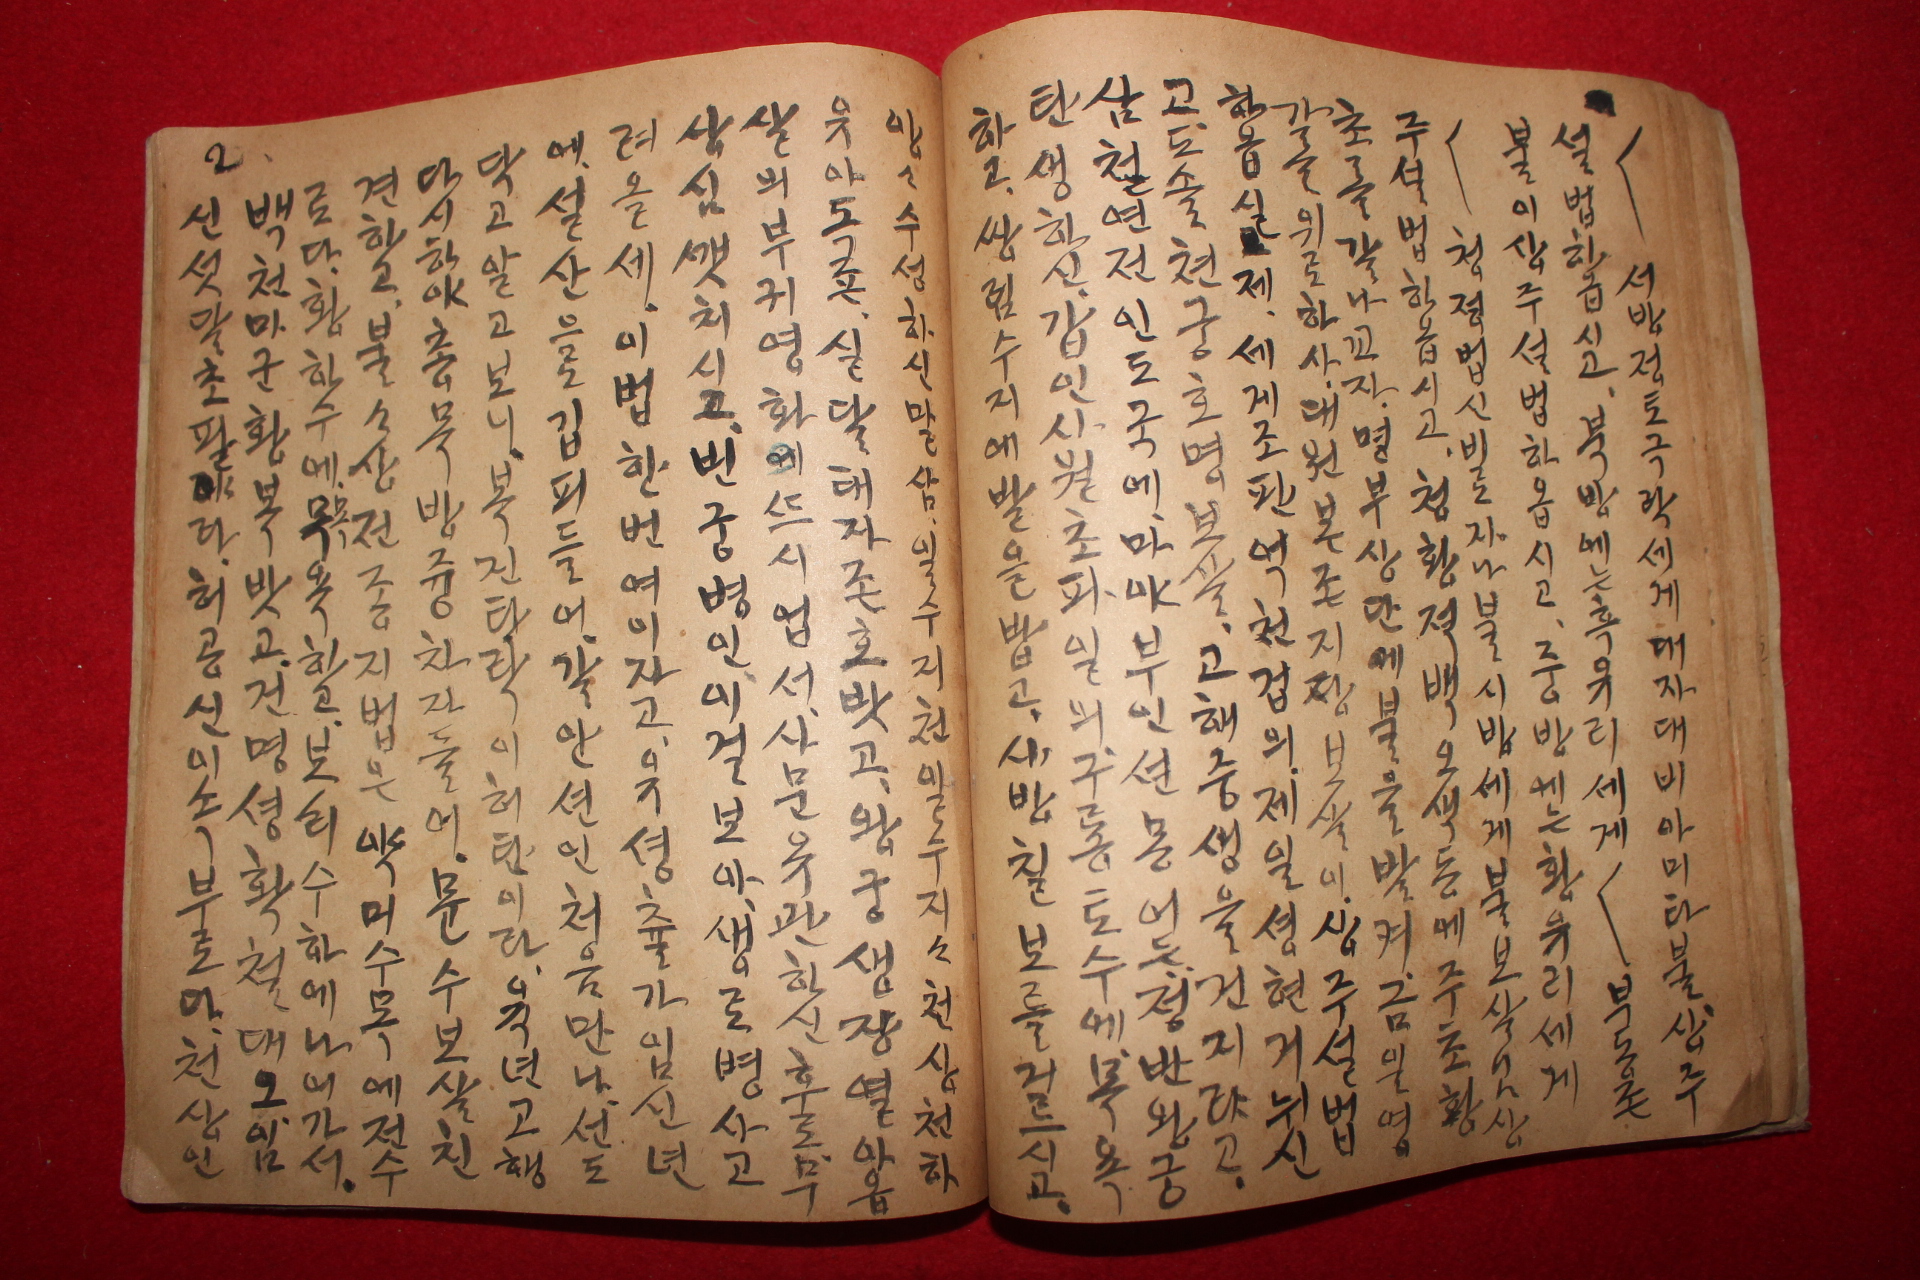 서방정토극락세계대자대비아미타불상주
설법하옵시고, 북방에는흑유리세계 부동존
불이상주설법하옵시고, 중방에는황유리세계
청정법신비로자나불시방세계불보살님상
주설법하옵시고, 청황적백오색등에주초황
초를갈나꼬자, 명부상단에불을발켜, 금일영
갈을위로하사, 대원본존지장보살이, 상주설법
하옵실제, 세계조판억천겁의, 제일셩현거뉘신
고, 도솔천궁호명보살, 고해중생을건지랴고,
삼천연전인도국에, 마야부인션몽어듯, 정반왕궁
탄생하신, 갑인사월초파일의, 구룡토수에목욕
하고, 쌍림수지에발을밥고, 사방칠보를거르시고,
앙ᄉ수성하신말삼, 일수지천일수지ᄉ천상천하
유아도존, 실달태자존호밧고, 왕궁생장열아읍
살의부귀영화에뜨시업서, 사문유관하신후로부
삼심깻처시고, 빈궁병인이걸보아, 생로병사고
려올세, 이법한번여이자고, 유셩출가임신년
에, 설산으로깁피들어, 갈안션인처음만나, 선도
닥고알고보니, 복진타락이허탄이라, 육년고행
다시하야총목방즁차자들어, 문수보살친
견하고, 불ᄉ상전종지법은약며수목에전수
로다, 황하수에목욕하고, 보리수하에나어가서,
백천마군황복밧고, 건명셩확철대오임
신섯달초팔야라, 허공신이소부로다, 천상인
2